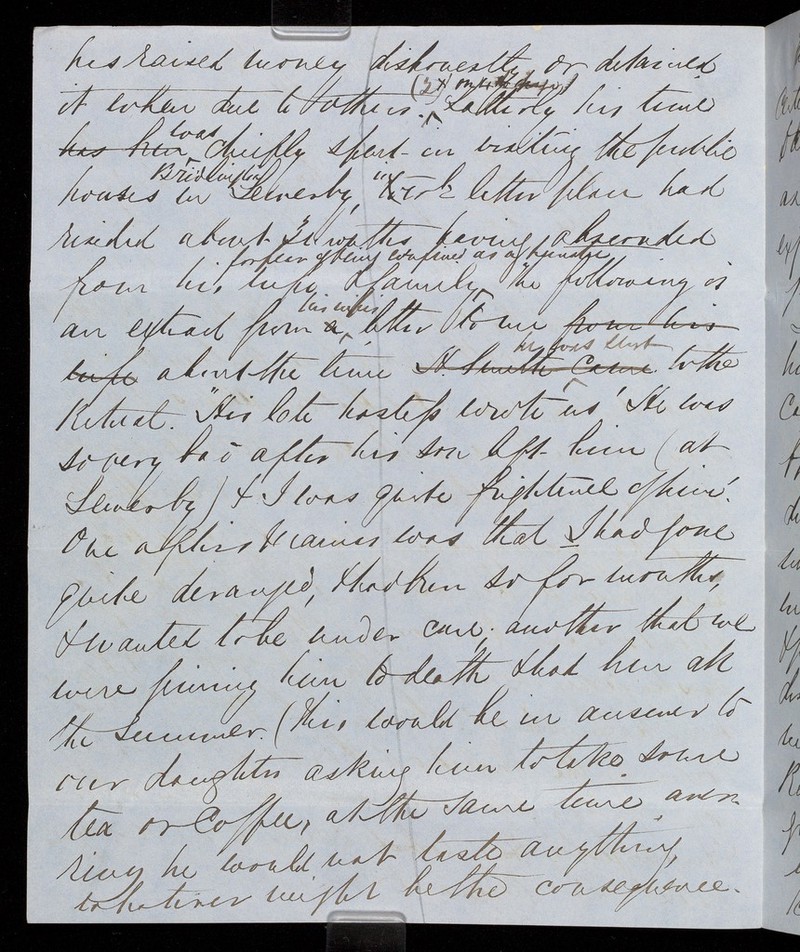 his raised money dishonestly or detained
it when due to others. Latterly his time
has been was chiefly spent in visiting the public
houses in Bridlington Sewerby, letter place had
resided about months having absconded
from his wife & family, for fear of being confined as a lunatic The following is
an extract from a his wife's letter to me from his
wife about the time H. Smith came he was sent to the
Retreat. "His late hostess wrote us 'He was
so very bad after his son left him (at
Sewerby) & I was quite frightened of him'.
One of his vagaries was that I had gone
quite deranged, & had been so for months,
& wanted to be under care. another that we
were pining him to death & had been all
the summer. (This would be in answer to
our daughter asking him to take some
tea or coffee, at the same time aver-
ring he would not taste anything,
whatever might be the consequence.